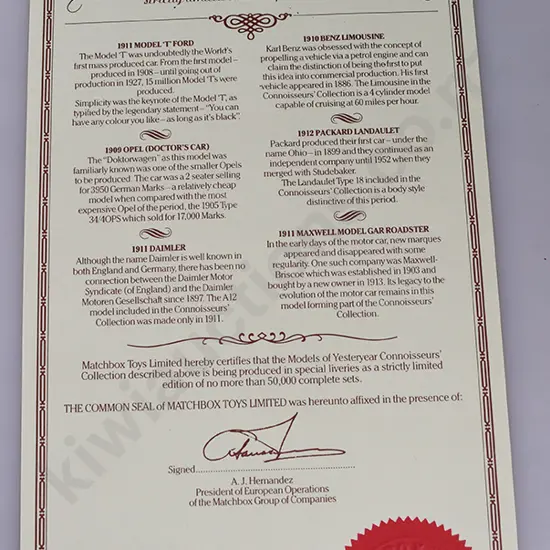 1911 MODEL 'T' FORD
The Model 'T' was undoubtedly the World's
first mass produced car. From the first model –
produced in 1908 – until going out of
production in 1927, 15 million Model 'T's were
produced.
Simplicity was the keynote of the Model 'T', as
typified by the legendary statement – "You can
have any colour you like – as long as it's black".
1909 OPEL (DOCTOR'S CAR)
The "Doktorwagen" as this model was
familiarly known was one of the smaller Opels
to be produced. The car was a 2 seater selling
for 3950 German Marks – a relatively cheap
model when compared with the most
expensive Opel of the period, the 1905 Type
34/4OPS which sold for 17,000 Marks.
1911 DAIMLER
Although the name Daimler is well known in
both England and Germany, there has been no
connection between the Daimler Motor
Syndicate (of England) and the Daimler
Motoren Gesellschaft since 1897. The A12
model included in the Connoisseurs'
Collection was made only in 1911.
1910 BENZ LIMOUSINE
Karl Benz was obsessed with the concept of
propelling a vehicle via a petrol engine and can
claim the distinction of being the first to put
this idea into commercial production. His first
vehicle appeared in 1886. The Limousine in the
Connoisseurs' Collection is a 4 cylinder model
capable of cruising at 60 miles per hour.
1912 PACKARD LANDAULET
Packard produced their first car – under the
name Ohio – in 1899 and they continued as an
independent company until 1952 when they
merged with Studebaker.
The Landaulet Type 18 included in the
Connoisseurs' Collection is a body style
distinctive of this period.
1911 MAXWELL MODEL GAR ROADSTER
In the early days of the motor car, new marques
appeared and disappeared with some
regularity. One such company was Maxwell-
Briscoe which was established in 1903 and
bought by a new owner in 1913. Its legacy to the
evolution of the motor car remains in this
model forming part of the Connoisseurs'
Collection.
Matchbox Toys Limited hereby certifies that the Models of Yesteryear Connoisseurs'
Collection described above is being produced in special liveries as a strictly limited
edition of no more than 50,000 complete sets.
THE COMMON SEAL of MATCHBOX TOYS LIMITED was hereunto affixed in the presence of:
Signed
A. J. Hernandez
President of European Operations
of the Matchbox Group of Companies